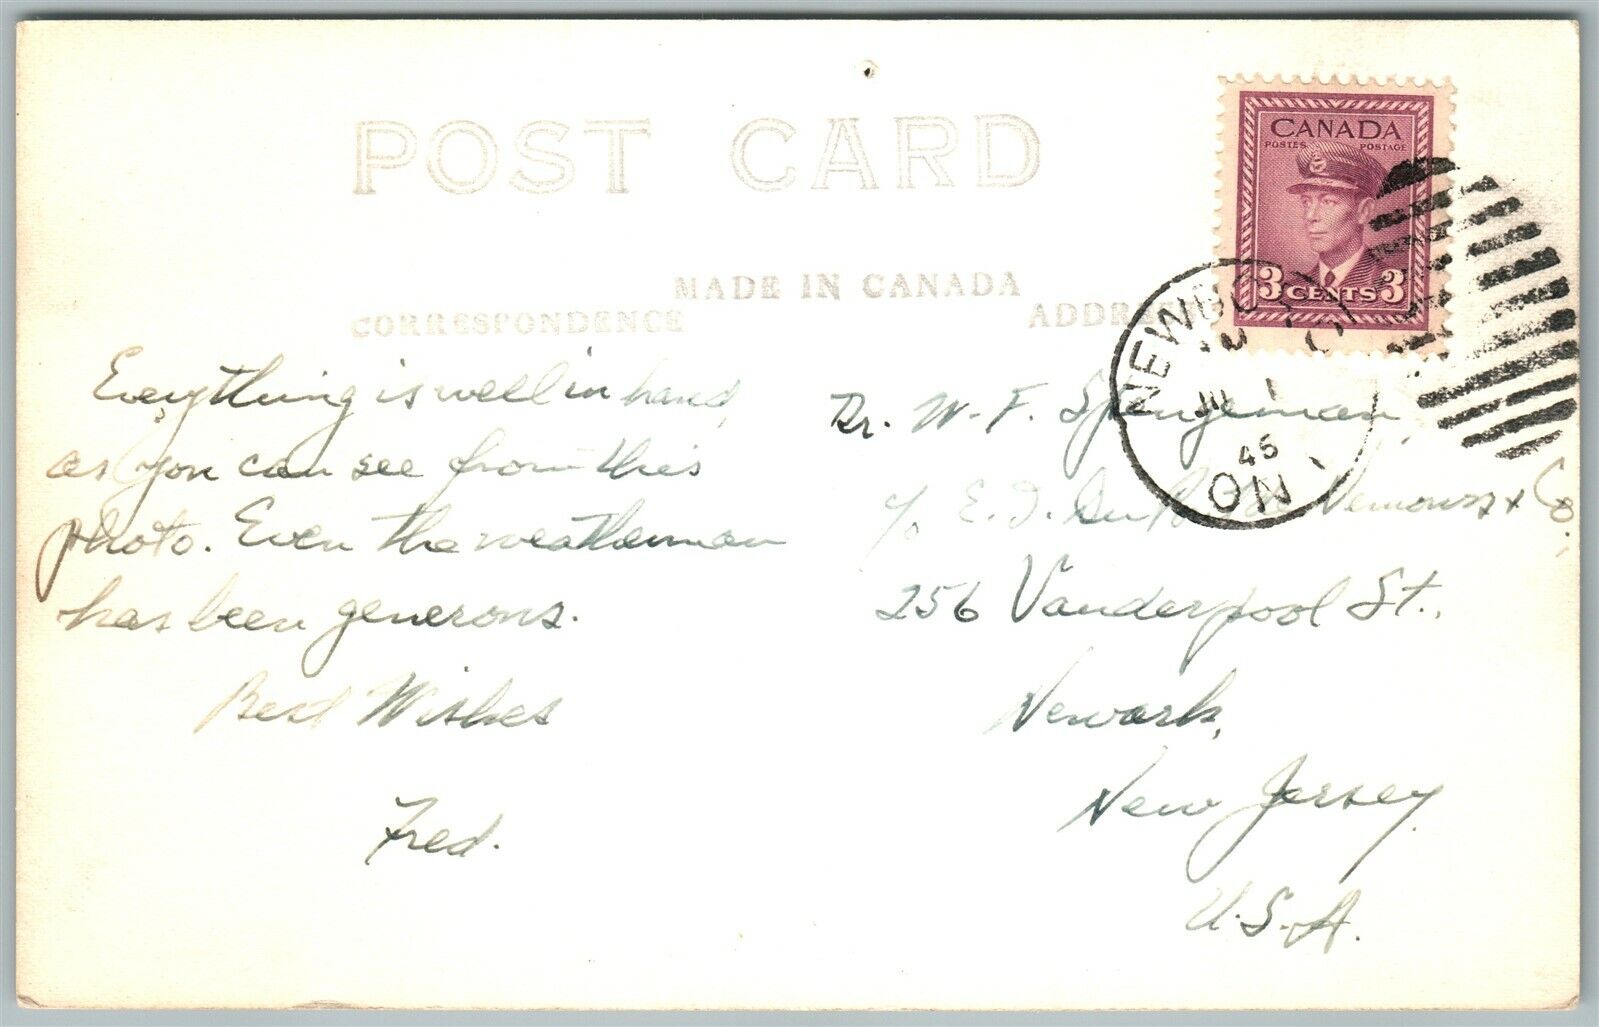 POST CARD
MADE IN CANADA
CORRESPONDENCE
ADDRESS
CANADA
POSTES POSTAGE
3 CENTS 3
JU 1
45
ON
Everything is well in hand,
as you can see from this
photo. Even the weatherman
has been generous.
Best Wishes
Fred.
Dr. W. F. Spengeman,
c/o E. I. Du Pont De Nemours & Co.,
256 Vanderpool St.,
Newark,
New Jersey
U.S.A.